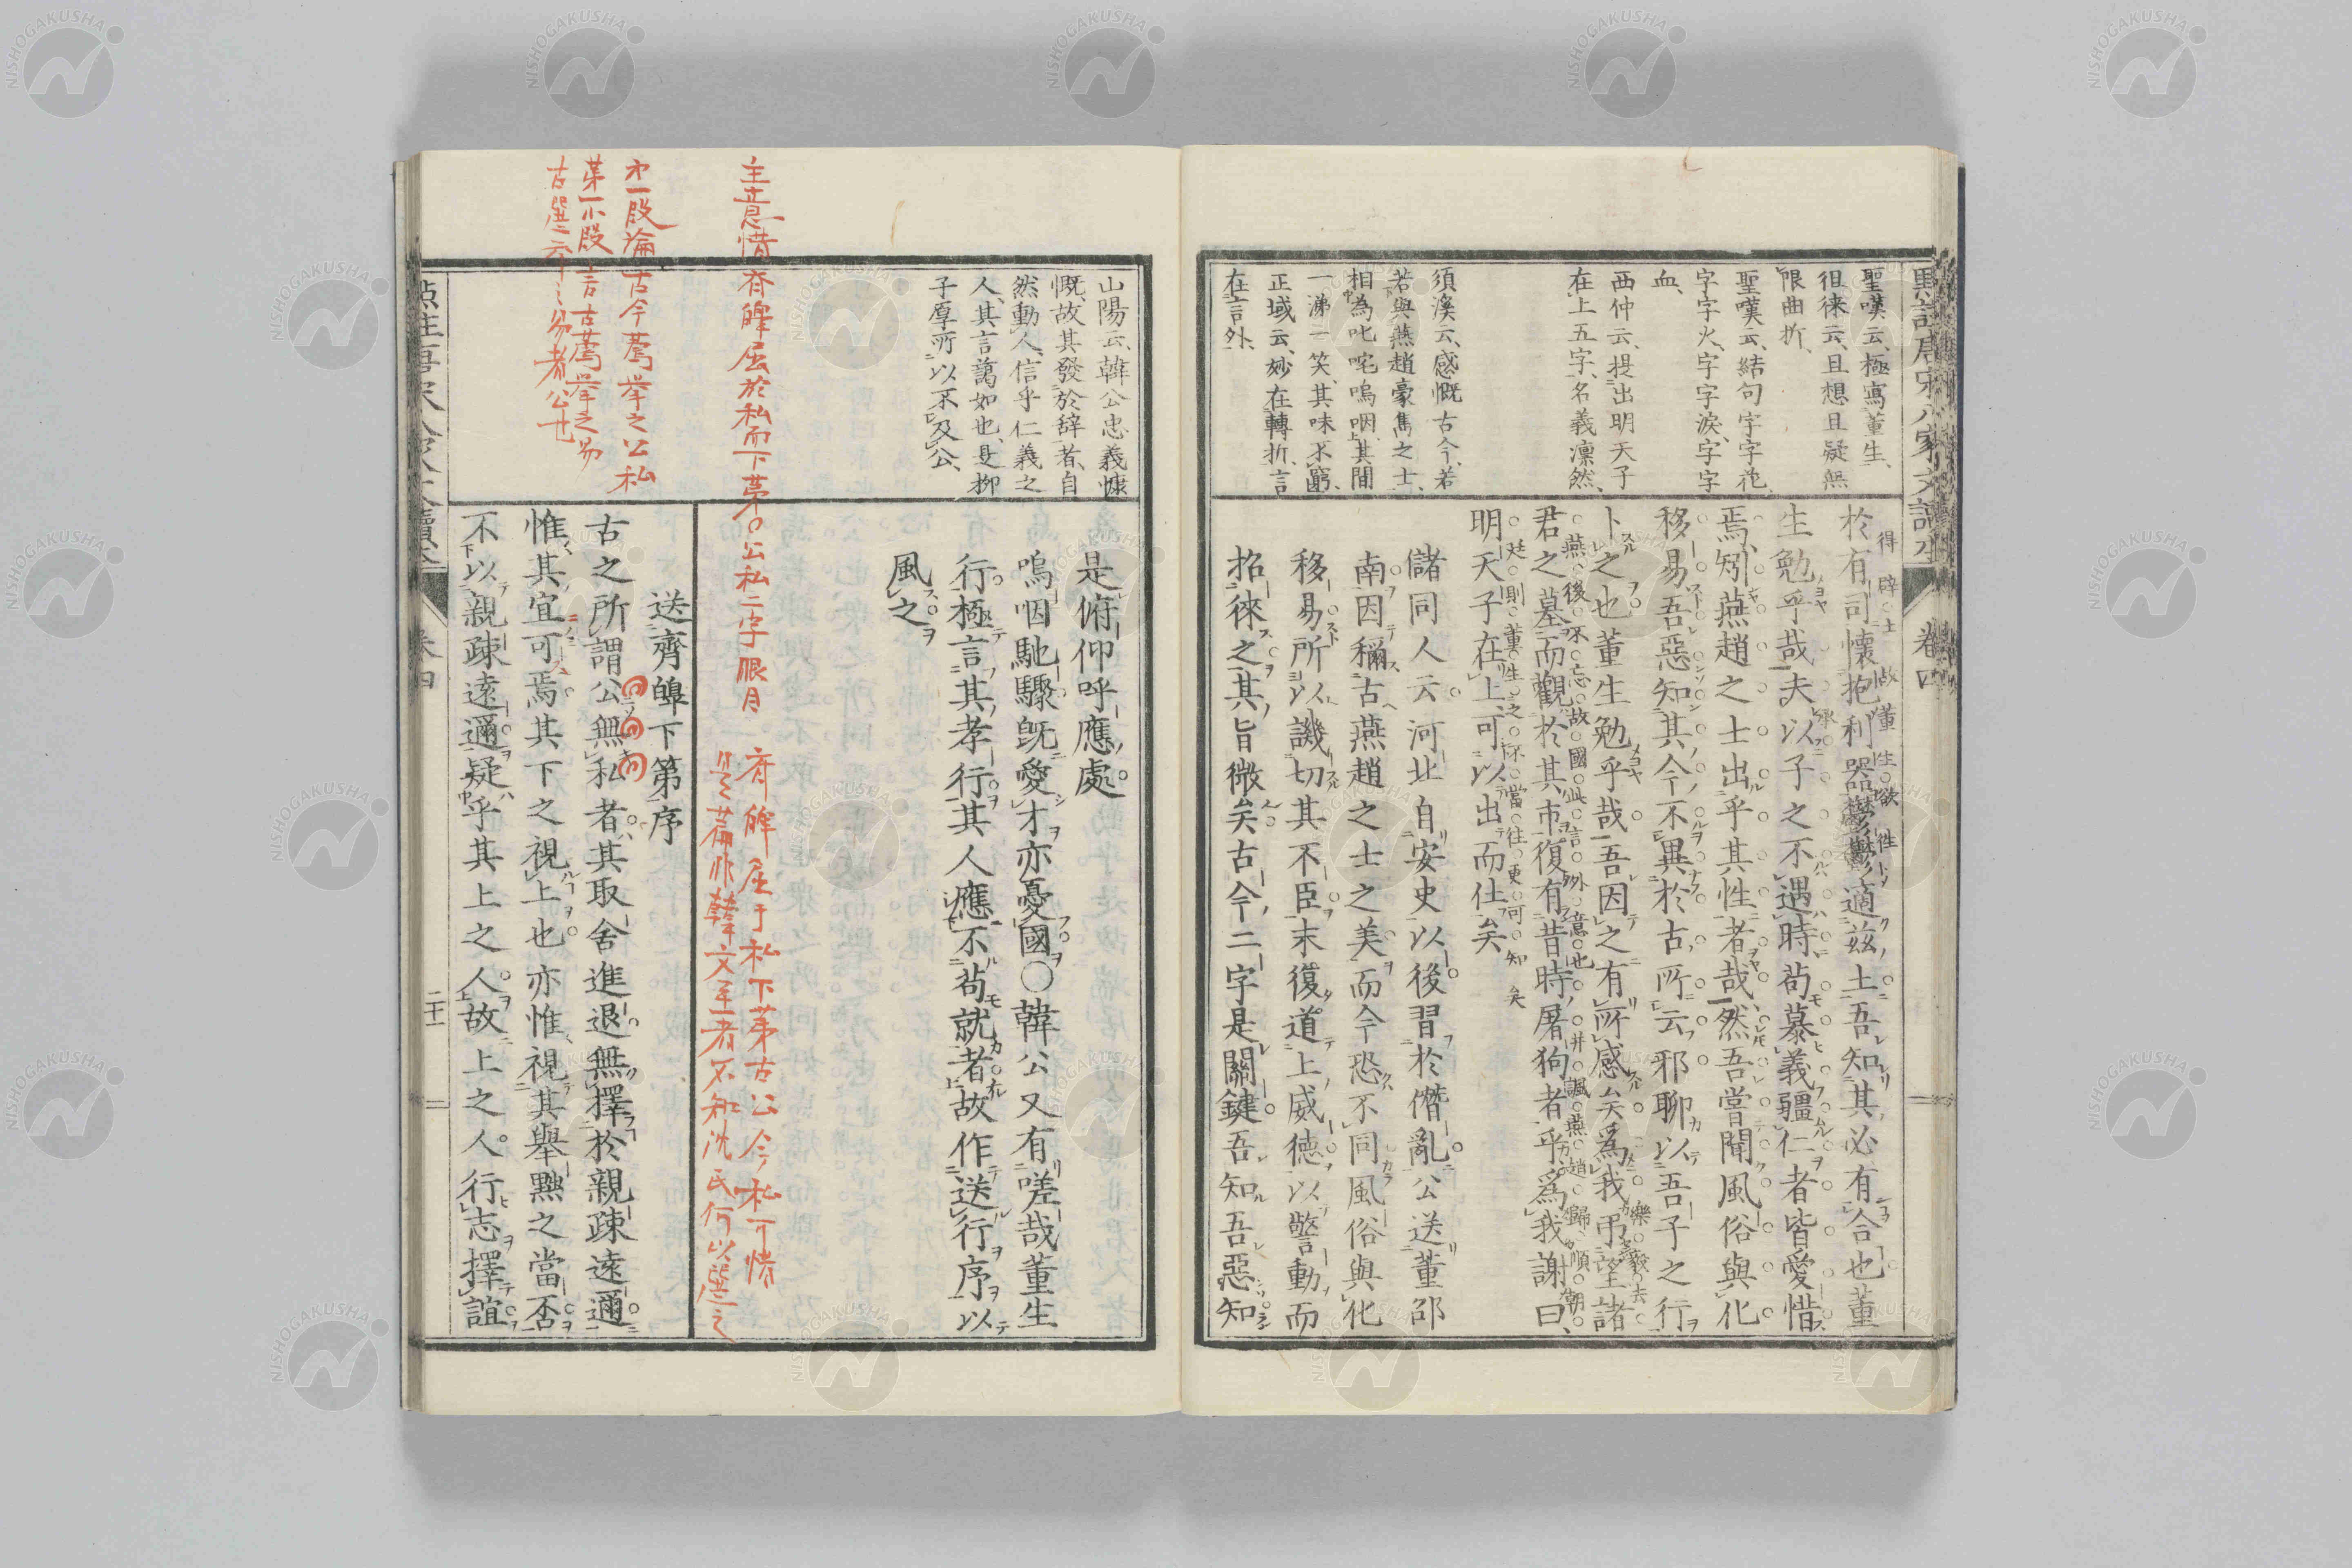 點註唐宋八家文讀本
卷四
聖嘆云、極寫董生、
徂徠云、且想且疑無
限曲折、
聖嘆云、結句字字花、
字字火、字字淚、字字
血、
西仲云、提出明天子
在上五字、名義凛然、
須溪云、感慨古今、若
若與燕趙豪雋之士、
相為叱咤嗚咽、其間
一涕一笑、其味不窮、
正域云、妙在轉折、言
在言外、
於有司懷抱利器鬱鬱適茲土吾知其必有合也董
生勉乎哉夫以子之不遇時苟慕義彊仁者皆愛惜
焉矧燕趙之士出乎其性者哉然吾嘗聞風俗與化
移易吾惡知其今不異於古所云邪聊以吾子之行
卜之也董生勉乎哉吾因之有所感矣爲我弔望諸
君之墓而觀於其市復有昔時屠狗者乎爲我謝曰、
明天子在上可以出而仕矣
儲同人云河北自安史以後習於僭亂公送董邵
南因稱古燕趙之士之美而今恐不同風俗與化
移易所以譏切其不臣末復道上威德以警動而
招徠之其旨微矣古今二字是關鍵吾知吾惡知
山陽云、韓公忠義慷
慨、故其發於辞者、自
然動人、信乎仁義之
人、其言藹如也、是柳
子厚所以不及公、
是俯仰呼應處
嗚咽馳驟既愛才亦憂國○韓公又有嗟哉董生
行極言其孝行其人應不苟就者故作送行序以
風之
主意惜齊皥屈於私而下第。公私二字眼目
齊皥屈于私下第古公今私可慘
是篇非韓文至者不知沈氏何以選之
送齊皥下第序
古之所謂公無私者其取舍進退無擇於親疎遠邇
惟其宜可焉其下之視上也亦惟視其舉黜之當否
不以親疎遠邇疑乎其上之人故上之人行志擇誼
才一段論古今薦举之公私
第一小段言古薦举之易
卷四
二十一